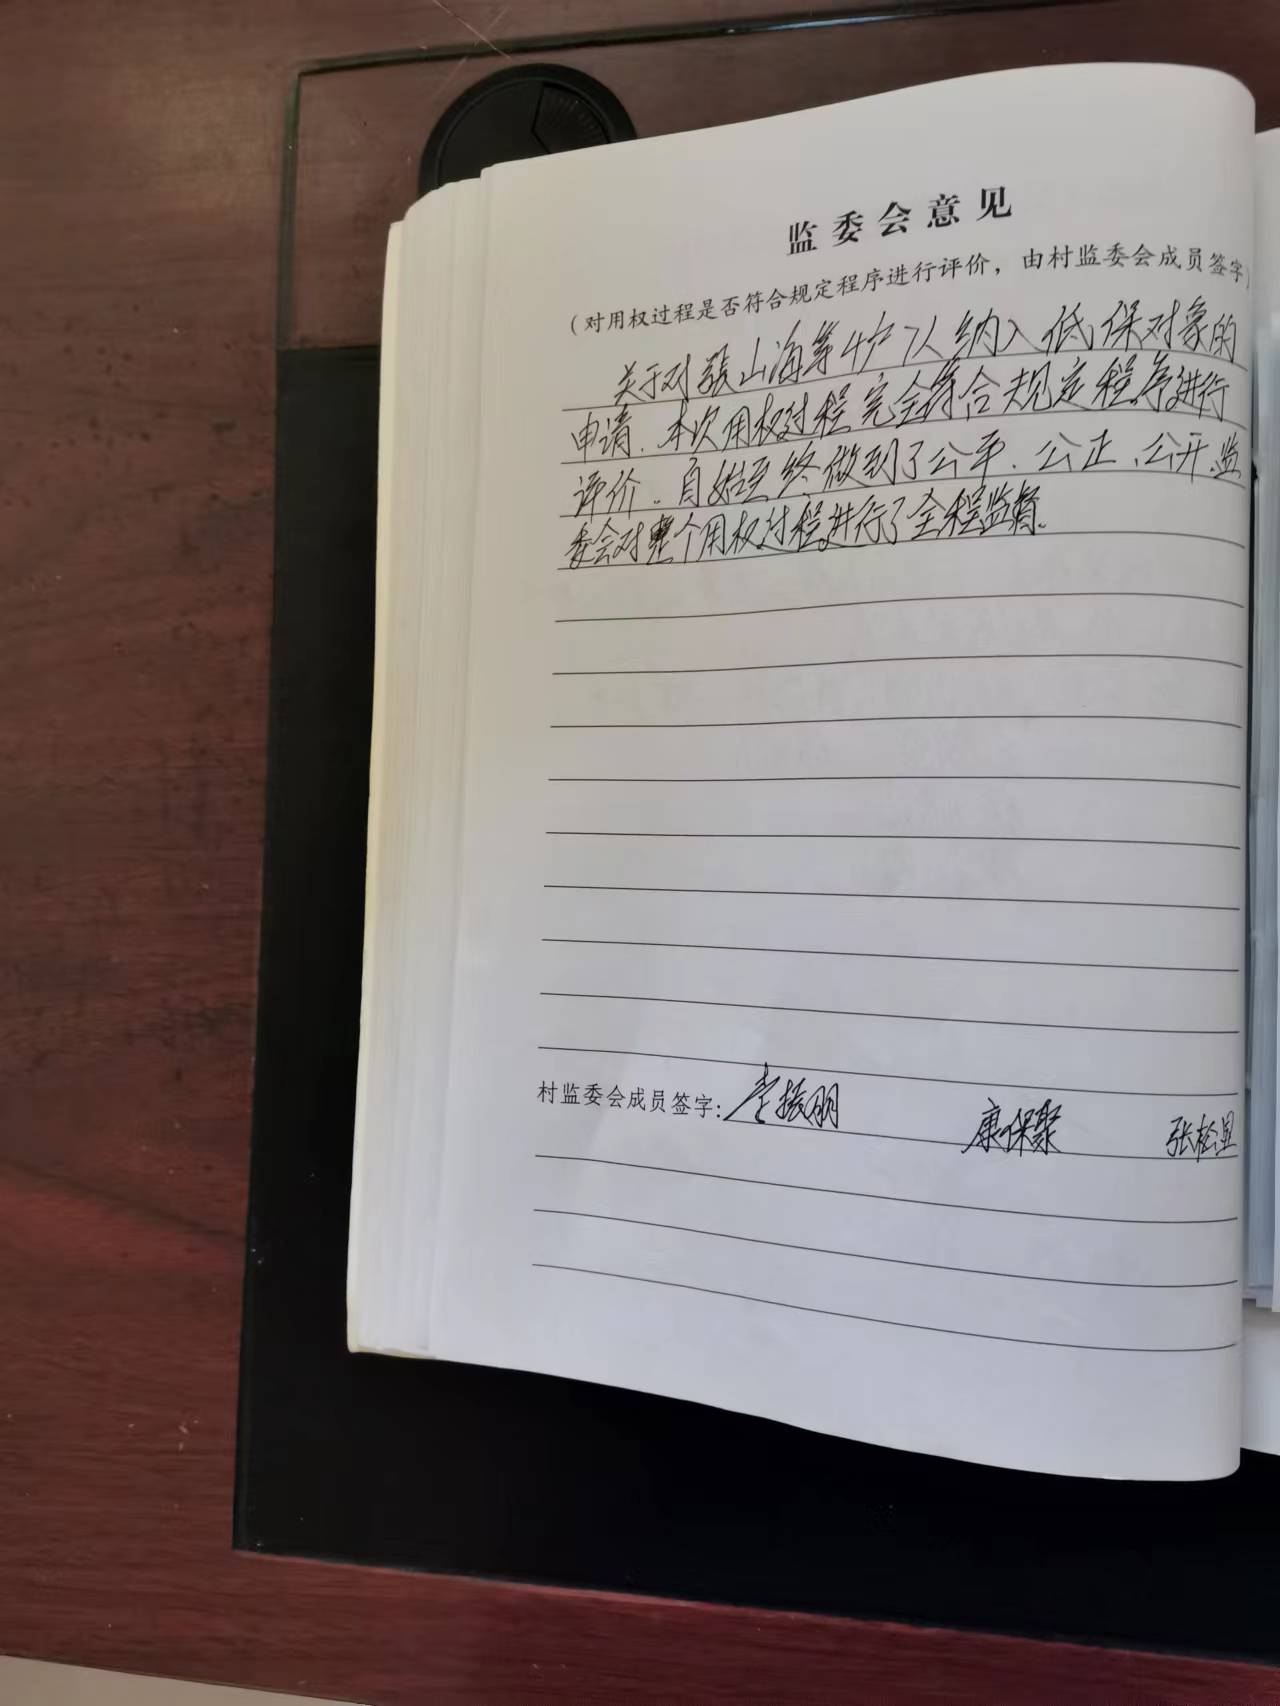 监委会意见
（对用权过程是否符合规定程序进行评价，由村监委会成员签字）
关于对張山海等4户7人纳入低保对象的
申请.本次用权过程完全符合规定程序进行
评价.自始至终做到了公平、公正、公开.监
委会对整个用权过程进行了全程监督.
村监委会成员签字：李振明 康保聚 张松